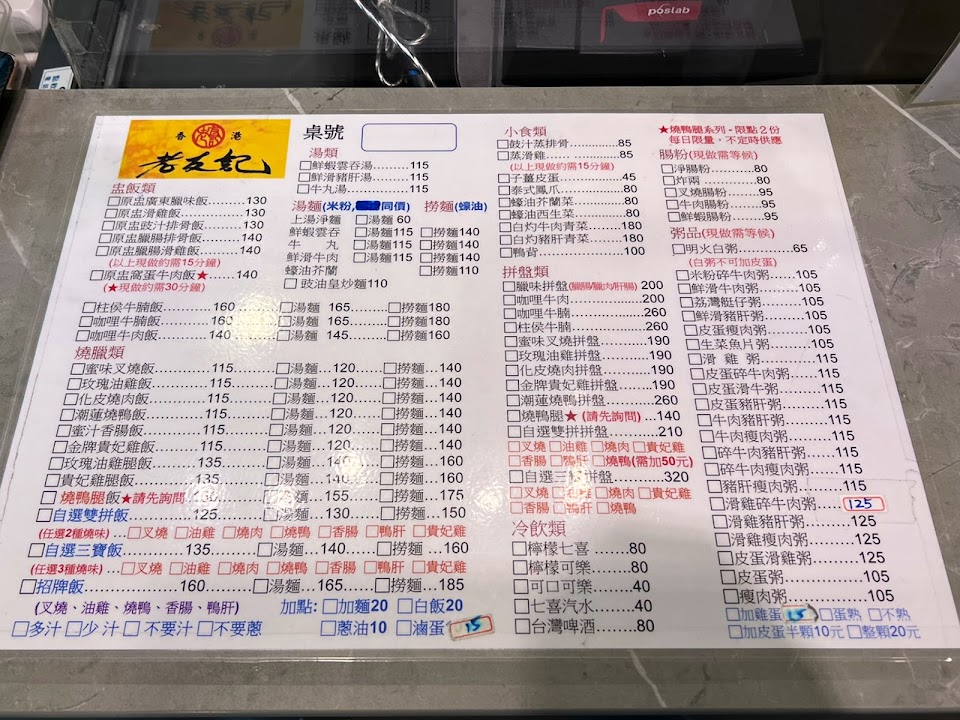 póslab
香 港
老友記
盅飯類
□原盅廣東臘味飯.........130
□原盅滑雞飯.........130
□原盅豉汁排骨飯.........130
□原盅臘腸排骨飯.........140
□原盅臘腸滑雞飯.........140
(以上現做約需15分鐘)
□原盅窩蛋牛肉飯★......140
(★現做約需30分鐘)
桌號
湯類
□鮮蝦雲吞湯......115
□鮮滑豬肝湯......115
□牛丸湯......115
湯麵(米粉,同價) 撈麵(蠔油)
上湯淨麵 □湯麵 60
鮮蝦雲吞 □湯麵115 □撈麵140
牛 丸 □湯麵115 □撈麵140
鮮滑牛肉 □湯麵115 □撈麵140
蠔油芥蘭 □撈麵110
□豉油皇炒麵110
□柱侯牛腩飯......160 □湯麵 165......□撈麵180
□咖哩牛腩飯......160 □湯麵 165......□撈麵180
□咖哩牛肉飯......140 □湯麵 145......□撈麵160
燒臘類
□蜜味叉燒飯......115......□湯麵...120......□撈麵...140
□玫瑰油雞飯......115......□湯麵...120......□撈麵...140
□化皮燒肉飯......115......□湯麵...120......□撈麵...140
□潮蓮燒鴨飯......115......□湯麵...120......□撈麵...140
□蜜汁香腸飯......115......□湯麵...120......□撈麵...140
□金牌貴妃雞飯......115......□湯麵...120......□撈麵...140
□玫瑰油雞腿飯......135......□湯麵...140......□撈麵...160
□貴妃雞腿飯......135......□湯麵...140......□撈麵...160
□燒鴨腿飯★請先詢問 150......□湯麵...155......□撈麵...175
□自選雙拼飯......125......□湯麵...130......□撈麵...150
(任選2種燒味)...□叉燒 □油雞 □燒肉 □燒鴨 □香腸 □鴨肝 □貴妃雞
□自選三寶飯......135......□湯麵...140......□撈麵...160
(任選3種燒味)...□叉燒 □油雞 □燒肉 □燒鴨 □香腸 □鴨肝 □貴妃雞
□招牌飯......160......□湯麵...165......□撈麵...185
(叉燒、油雞、燒鴨、香腸、鴨肝)
加點:□加麵20 □白飯20
□多汁□少汁 □不要汁 □不要蔥 □蔥油10 □滷蛋 15
小食類
□豉汁蒸排骨......85
□蒸滑雞......85
(以上現做約需15分鐘)
□子薑皮蛋......45
□泰式鳳爪......80
□蠔油芥蘭菜......80
□蠔油西生菜......80
□白灼牛肉青菜......180
□白灼豬肝青菜......180
□鴨背......100
拼盤類
□臘味拼盤(臘腸/臘肉/肝腸) 200
□咖哩牛肉......200
□咖哩牛腩......260
□柱侯牛腩......260
□蜜味叉燒拼盤......190
□玫瑰油雞拼盤......190
□化皮燒肉拼盤......190
□金牌貴妃雞拼盤......190
□潮蓮燒鴨拼盤......260
□燒鴨腿★(請先詢問)...140
□自選雙拼拼盤......210
□叉燒 □油雞 □燒肉 □貴妃雞
□香腸 □鴨肝 □燒鴨(需加50元)
□自選三寶拼盤......320
□叉燒 □油雞 □燒肉 □貴妃雞
□香腸 □鴨肝 □燒鴨
冷飲類
□檸檬七喜......80
□檸檬可樂......80
□可口可樂......40
□七喜汽水......40
□台灣啤酒......80
★燒鴨腿系列-限點2份
每日限量,不定時供應
腸粉(現做需等候)
□淨腸粉......80
□炸兩......80
□叉燒腸粉......95
□牛肉腸粉......95
□鮮蝦腸粉......95
粥品(現做需等候)
□明火白粥......65
(白粥不可加皮蛋)
□米粉碎牛肉粥...105
□鮮滑牛肉粥......105
□荔灣艇仔粥......105
□鮮滑豬肝粥......105
□皮蛋瘦肉粥......105
□生菜魚片粥......105
□滑 雞 粥......115
□皮蛋碎牛肉粥......115
□皮蛋滑牛粥......115
□皮蛋豬肝粥......115
□牛肉豬肝粥......115
□牛肉瘦肉粥......115
□碎牛肉豬肝粥......115
□碎牛肉瘦肉粥......115
□豬肝瘦肉粥......115
□滑雞碎牛肉粥...125
□滑雞豬肝粥......125
□滑雞瘦肉粥......125
□皮蛋滑雞粥......125
□皮蛋粥......105
□瘦肉粥......105
□加雞蛋 15 □蛋熟 □不熟
□加皮蛋半顆10元□整顆20元